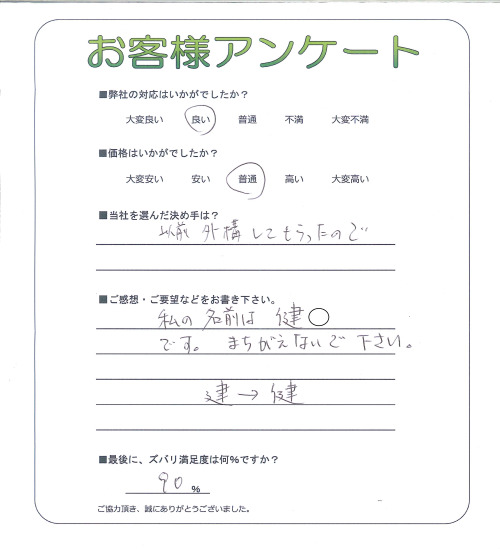 お客様アンケート
■弊社の対応はいかがでしたか？
大変良い 良い 普通 不満 大変不満
■価格はいかがでしたか？
大変安い 安い 普通 高い 大変高い
■当社を選んだ決め手は？
以前 外構してもらったので
■ご感想・ご要望などをお書き下さい。
私の名前は 健○
です。 まちがえないで下さい。
建→健
■最後に、ズバリ満足度は何%ですか？
90%
ご協力頂き、誠にありがとうございました。